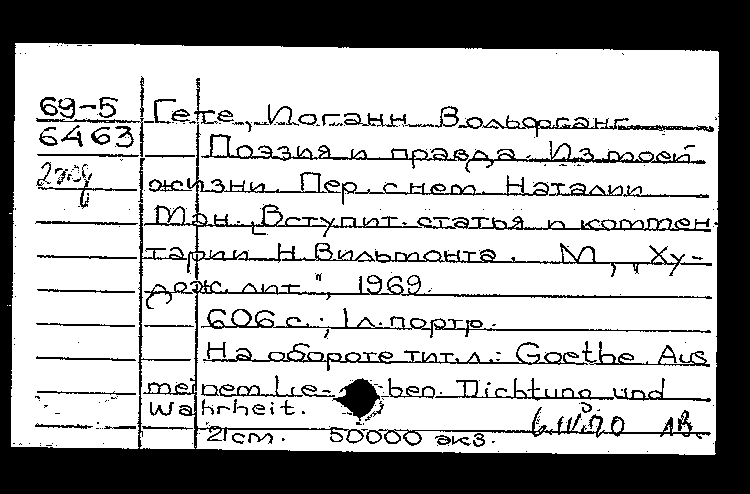 69-5
6463
2 экз
Гете, Иоганн Вольфганг
Поэзия и правда. Из моей
жизни. Пер. с нем. Наталии
Ман. [Вступит. статья и коммен-
тарии Н. Вильмонта. М., "Ху-
дож. лит.", 1969.
606 с.; 1 л. портр.
На обороте тит. л.: Goethe. Aus
meinem Le- ben. Dichtung und
Wahrheit.
21 cm. 50000 экз.
6.IV.70